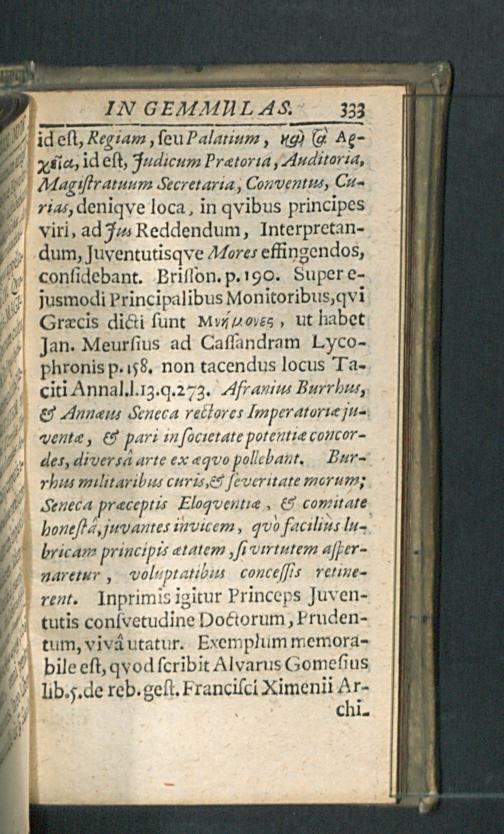 IN GEMMULAS. 333
id est, Regiam, seu Palatium, καὶ τὰ Ἀρ-
χεῖα, id est, Judicum Prætoria, Auditoria,
Magistratuum Secretaria, Conventus, Cu-
rias, deniqve loca, in qvibus principes
viri, ad Jus Reddendum, Interpretan-
dum, Juventutisqve Mores effingendos,
considebant. Brisson. p. 190. Super e-
jusmodi Principalibus Monitoribus, qvi
Græcis dicti sunt Μνήμονες, ut habet
Jan. Meursius ad Cassandram Lyco-
phronis p. 158. non tacendus locus Ta-
citi Annal. l. 13. q. 273. Afranius Burrhus,
& Annæus Seneca rectores Imperatoriæ ju-
ventæ, & pari in societate potentiæ concor-
des, diversâ arte ex æqvo pollebant. Bur-
rhus militaribus curis, & severitate morum;
Seneca præceptis Eloqventiæ, & comitate
honestâ, juvantes invicem, qvò faciliùs lu-
bricam principis ætatem, si virtutem asper-
naretur, voluptatibus concessis retine-
rent. Inprimis igitur Princeps Juven-
tutis consvetudine Doctorum, Pruden-
tum, vivâ utatur. Exemplum memora-
bile est, qvod scribit Alvarus Gomesius
lib. 5. de reb. gest. Francisci Ximenii Ar-
chi-